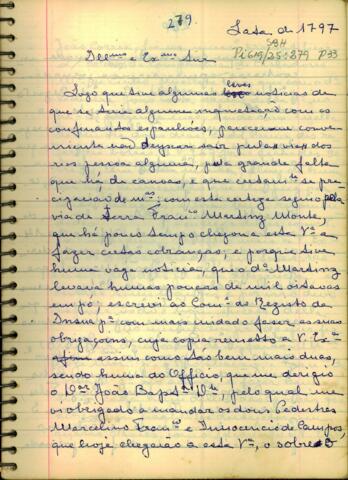 279
Lata de 1797
BH
Pi 619/25:279 P 33
Illmo e Exmo Snr
Logo que tive algumas leves noticias de
que se teria alguma inquietação com os
confinantes espanhóes, pareceume conve-
niente não deyxar sair pelas vias dos
rios pessoa alguma, pela grande falta
que há de canoas, e que certamte se pre-
cizarão de mas; com esta certeza seguio pela
via de terra Franco Martinz Monte,
que há pouco tempo chegou a esta Va a
fazer certas cobranças, e porque tive
huma vaga noticia, que o do Martinz
levava humas poucas de mil oitavas
em pó, escrevi ao Come do Registo da
Insua pa com mais cuidado fazer as suas
obrigaçoins, cuja copia remetto a V. Exa
assim como tão bem mais duas,
sendo huma do Officio, que me derigio
o Dor João Bapta Dte, pelo qual me
vi obrigado a mandar os dous Pedestres
Marcelino Franco e Innocencio de Campos,
que hoje chegarão a esta Va, o sobredo